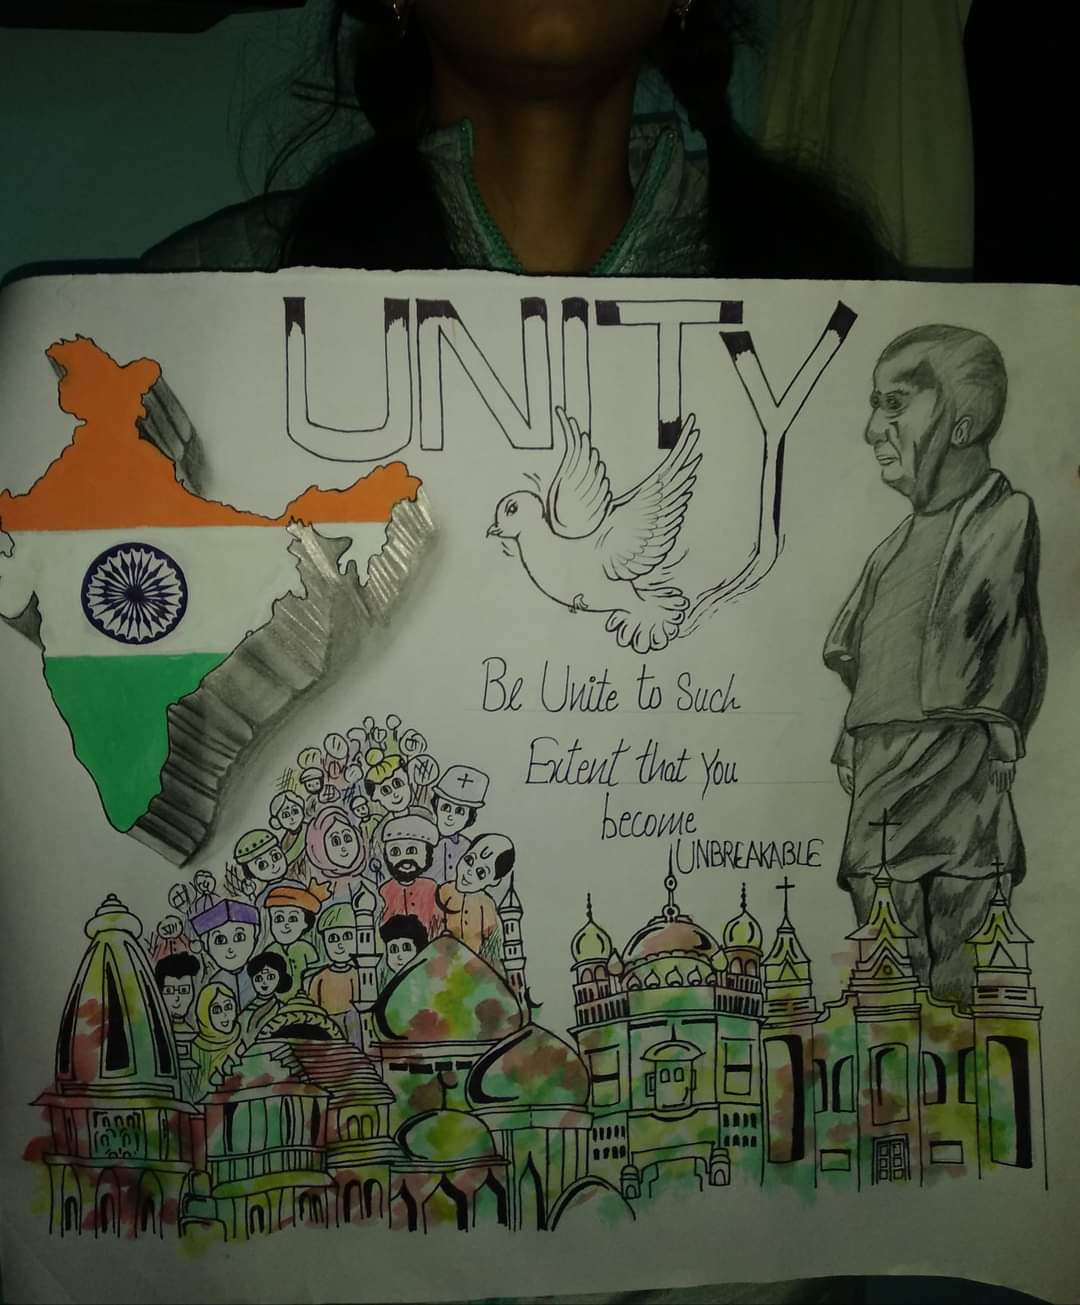 UNITY
Be Unite to Such
Extent that You
become
UNBREAKABLE